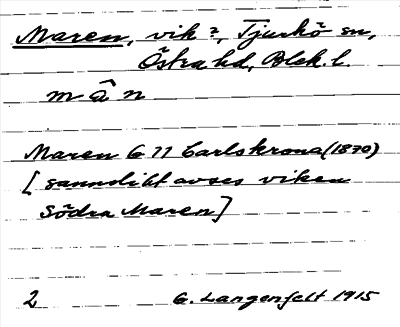 Maren, vik?, Tjurkö sn,
Östra hd, Blek. l.
mân
Maren G 11 Carlskrona (1870)
[sannolikt avses viken
Södra Maren]
2 G. Langenfelt 1915